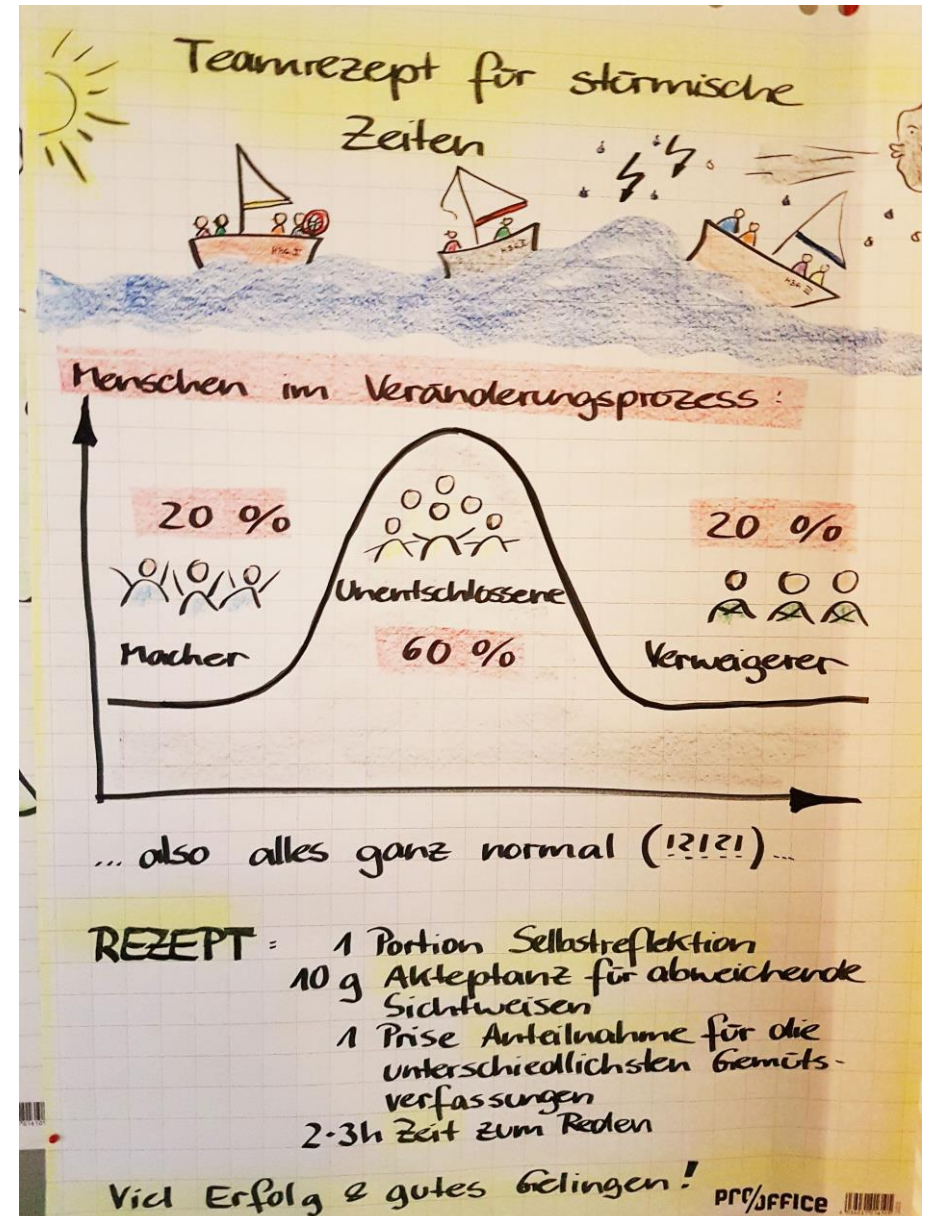 Teamrezept für stürmische
Zeiten
HSG I
HSG II
HSG III
Menschen im Veränderungsprozess:
20 %
20 %
Unentschlossene
Macher
60 %
Verweigerer
... also alles ganz normal (!?!?!)...
REZEPT: 1 Portion Selbstreflektion
10 g Akteptanz für abweichende
Sichtweisen
1 Prise Anteilnahme für die
unterschiedlichsten Gemüts-
verfassungen
2-3h Zeit zum Reden
Viel Erfolg & gutes Gelingen!
pro/office